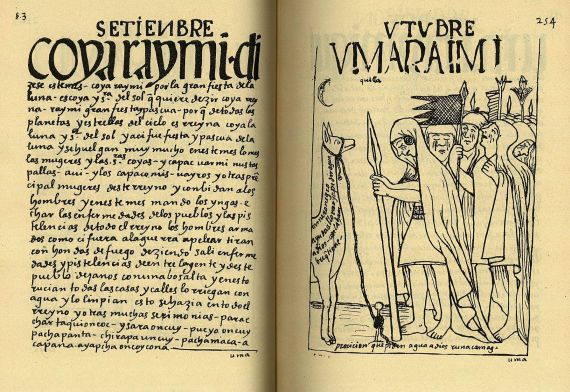 83
SETIENBRE
COYA RAYMI·di
zese este mes - coya raymi por la gran fiesta de la
luna - es coya y sª del sol q̃ quiere dezir coya rey
na - raymi gran fiesta y pascua - por q̃ de todas las
planetas y estrellas del cielo es rreyna coya la
luna y sª del sol y aci fue fiesta y pascua de la
luna y se huelgan muy mucho en este mes lo mas
las mugeres y las sras coyas - y capac uarmi nustas
pallas - aui - y los capac omis - uayros y otras prin
cipal mugeres deste rreyno y conbidan a los
hombres y en este mes mando los yngas - e
char las enfermedades de los pueblos y las pis
telencias de todo el rreyno los hombres arma
dos como ci fuera a la guerra a pelear tiran
con hondas de fuego deziendo sali enferme
dades y pistelencias de entre la gente y deste
pueblo dejanos con una bos alta y en esto
rucian todas las casas y calles lo rriegan con
agua y lo linpian esto se hazia en todo el
rreyno y otras muchas serimonias - para e
char taqui oncoc - y sara oncuy - pucyo oncuy
pacha panta - chirapa uncuy - pacha maca - a
capana ayapcha oncoycona
uma
254
VTVBRE
VMARAIMI
quilla
carnero negro
procicion que piden agua a dios runacamag -
uma